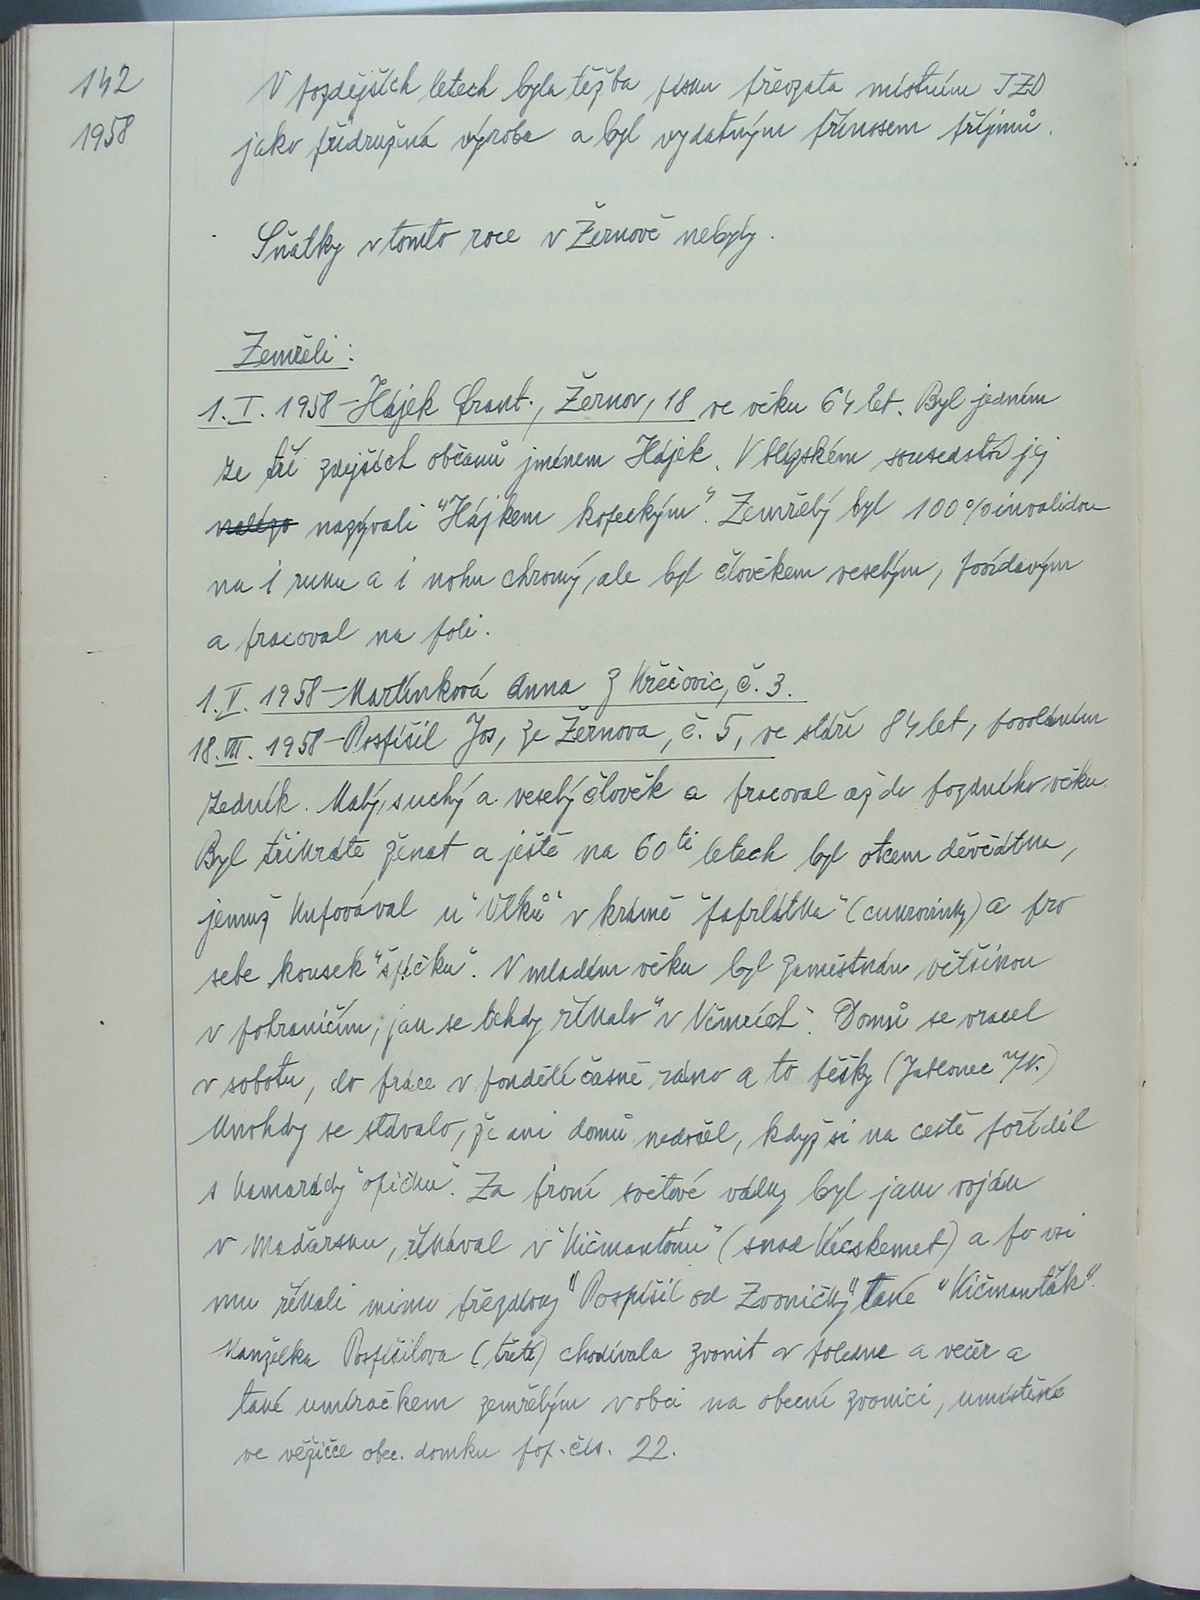 142
1958
V pozdějších letech byla těžba písku převzata místním JZD
jako přidružená výroba a byl vydatným přínosem příjmů.
Sňatky v tomto roce v Žernově nebyly.
Zemřeli:
1. I. 1958 - Hájek Frant., Žernov, 18 ve věku 64 let. Byl jedním
ze tří zdejších občanů jménem Hájek. V blízském sousedství jej
nazývali "Hájkem kopeckým". Zemřelý byl 100% invalidou
na 1 ruku a 1 nohu chromý, ale byl člověkem veselým, povídavým
a pracoval na poli.
1. V. 1958 - Martínková Anna z Křečovic, č. 3.
18. VIII. 1958 - Pospíšil Jos, ze Žernova, č. 5, ve stáří 84 let, povoláním
zedník. Malý, suchý a veselý člověk a pracoval až do pozdního věku.
Byl třikráte ženat a ještě na 60ti letech byl otcem děvčátka,
jemuž kupovával u "Vlků" v krámě "paprlátka" (cukrovinky) a pro
sebe kousek "špičku". V mladém věku byl zaměstnán většinou
v pohraničím, jak se tehdy říkalo "v Němcích". Domů se vracel
v sobotu, do práce v pondělí časně ráno a to pěšky (Jablonec n/N.)
Mnohdy se stávalo, že ani domů nedošel, když si na cestě pořídil
s kamarády "opičku". Za první světové války byl jako voják
v Maďarsku, říkával v "Kičmantónu" (snad Kécskemet) a po vsi
mu říkali mimo přezdívky "Pospíšil od Zvoničky" také "Kičmanťák".
Manželka Pospíšilova (třetí) chodívala zvonit v poledne a večer a
také umíráčkem zemřelým v obci na obecní zvonici, umístěné
ve věžičce obec. domku pop. čís. 22.